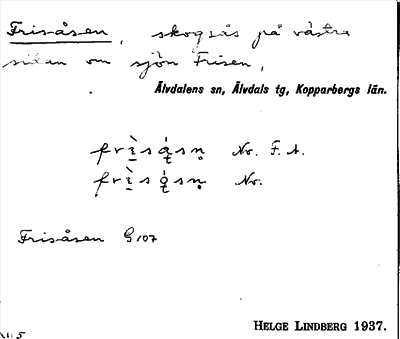 Frisåsen, skogsås på västra
sidan om sjön Frisen,
Älvdalens sn, Älvdals tg, Kopparbergs län.
Nr. F. A.
Nr.
Frisåsen G 107
HELGE LINDBERG 1937.